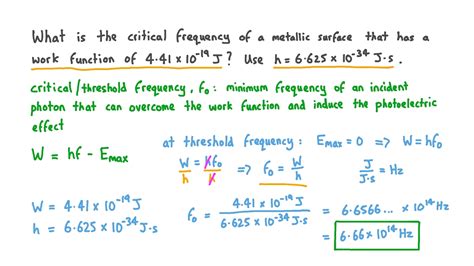 What is the critical frequency of a metallic surface that has a
work function of 4.41 × 10⁻¹⁹ J? Use h = 6.625 × 10⁻³⁴ J·s.
critical/threshold frequency, f₀: minimum frequency of an incident
photon that can overcome the work function and induce the photoelectric
effect
W = hf - Eₘₐₓ
at threshold frequency: Eₘₐₓ = 0 ⇒ W = hf₀
W/h = hf₀/h ⇒ f₀ = W/h
J/J·s = Hz
W = 4.41 × 10⁻¹⁹ J
h = 6.625 × 10⁻³⁴ J·s
f₀ = 4.41 × 10⁻¹⁹ J / 6.625 × 10⁻³⁴ J·s = 6.6566... × 10¹⁴ Hz
= 6.66 × 10¹⁴ Hz